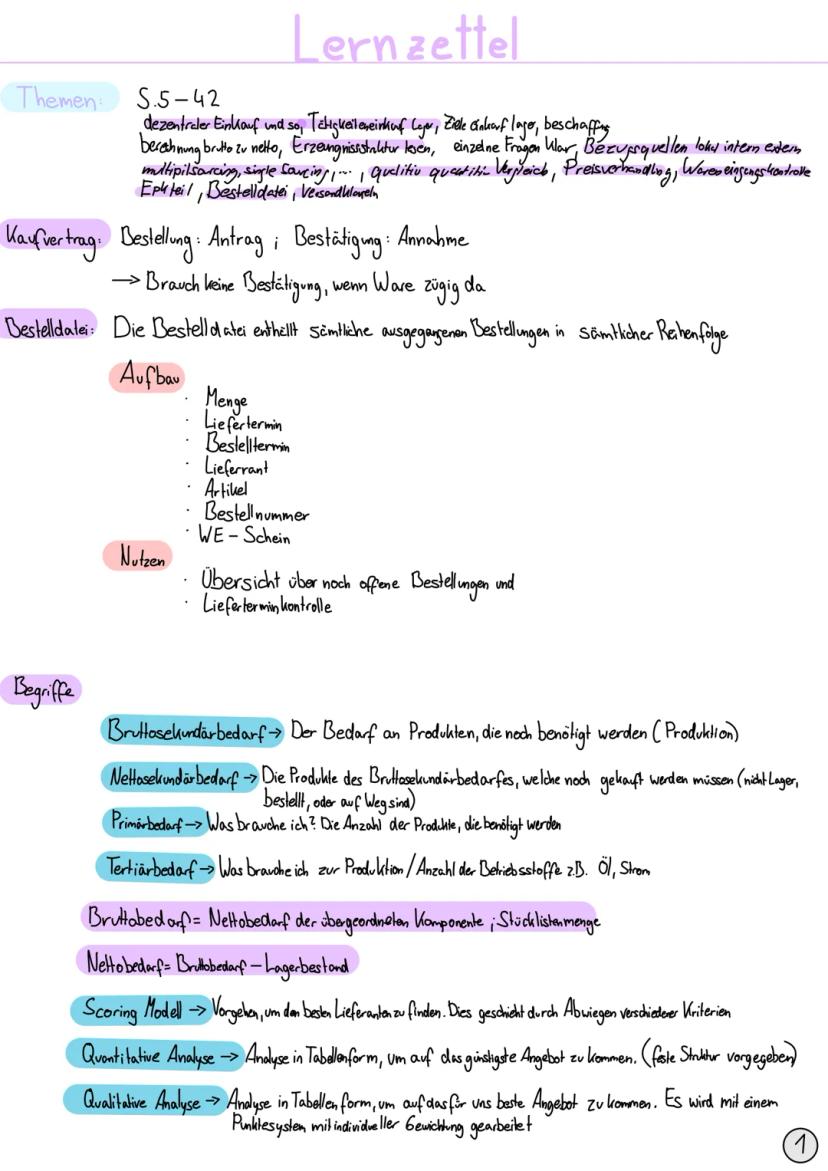 Lernzettel
Themen: S.5-42
dezentraler Einkauf und so, Tätigkeiten einkauf Lager, Ziele einkauf lager, beschaffung
berechnung brutto zu netto, Erzeugnisstruktur lesen, einzelne Fragen klar, Bezugsquellen lokal intern extern,
multiplisourcing, single Sourcing, ..., qualitiv quantitiv Vergleich, Preisverhandlng, Wareneingangskontrolle
Epk teil, Bestelldatei, Versandklauseln
Kaufvertrag: Bestellung: Antrag ; Bestätigung: Annahme
→ Brauch keine Bestätigung, wenn Ware zügig da
Bestelldatei: Die Bestelldatei enthällt sämtliche ausgegangenen Bestellungen in sämtlicher Reihenfolge
Aufbau
· Menge
· Liefertermin
· Bestelltermin
· Lieferrant
· Artikel
· Bestellnummer
· WE-Schein
Nutzen
· Übersicht über noch offene Bestellungen und
· Lieferterminkontrolle
Begriffe
Bruttosekundärbedarf → Der Bedarf an Produkten, die noch benötigt werden (Produktion)
Nettosekundärbedarf → Die Produkte des Bruttosekundärbedarfes, welche noch gekauft werden müssen (nicht Lager,
bestellt, oder auf Weg sind)
Primärbedarf → Was brauche ich? Die Anzahl der Produkte, die benötigt werden
Tertiärbedarf → Was brauche ich zur Produktion / Anzahl der Betriebsstoffe z.B. Öl, Strom
Bruttobedarf = Nettobedarf der übergeordneten Komponente ; Stücklistenmenge
Nettobedarf = Bruttobedarf - Lagerbestand
Scoring Modell → Vorgehen, um den besten Lieferanten zu finden. Dies geschieht durch Abwiegen verschiedener Kriterien
Quantitative Analyse → Analyse in Tabellenform, um auf das günstigste Angebot zu kommen. (feste Struktur vorgegeben)
Qualitative Analyse → Analyse in Tabellenform, um auf das für uns beste Angebot zu kommen. Es wird mit einem
Punktesystem mit individueller Gewichtung gearbeitet
1